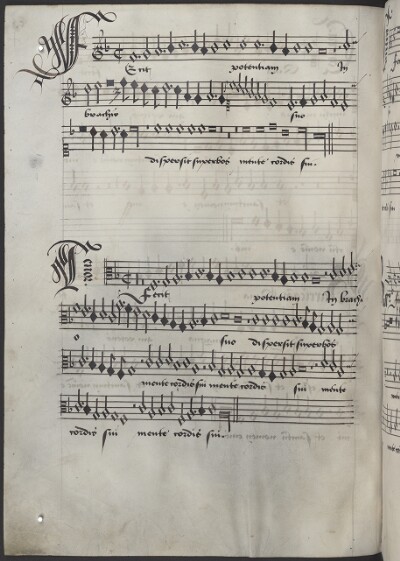 Fecit potentiam In
brachio suo
dispersit superbos mente cordis sui.
Fecit potentiam In brach
o suo dispersit superbos
mente cordis sui mente cordis sui mente
cordis sui mente cordis sui.